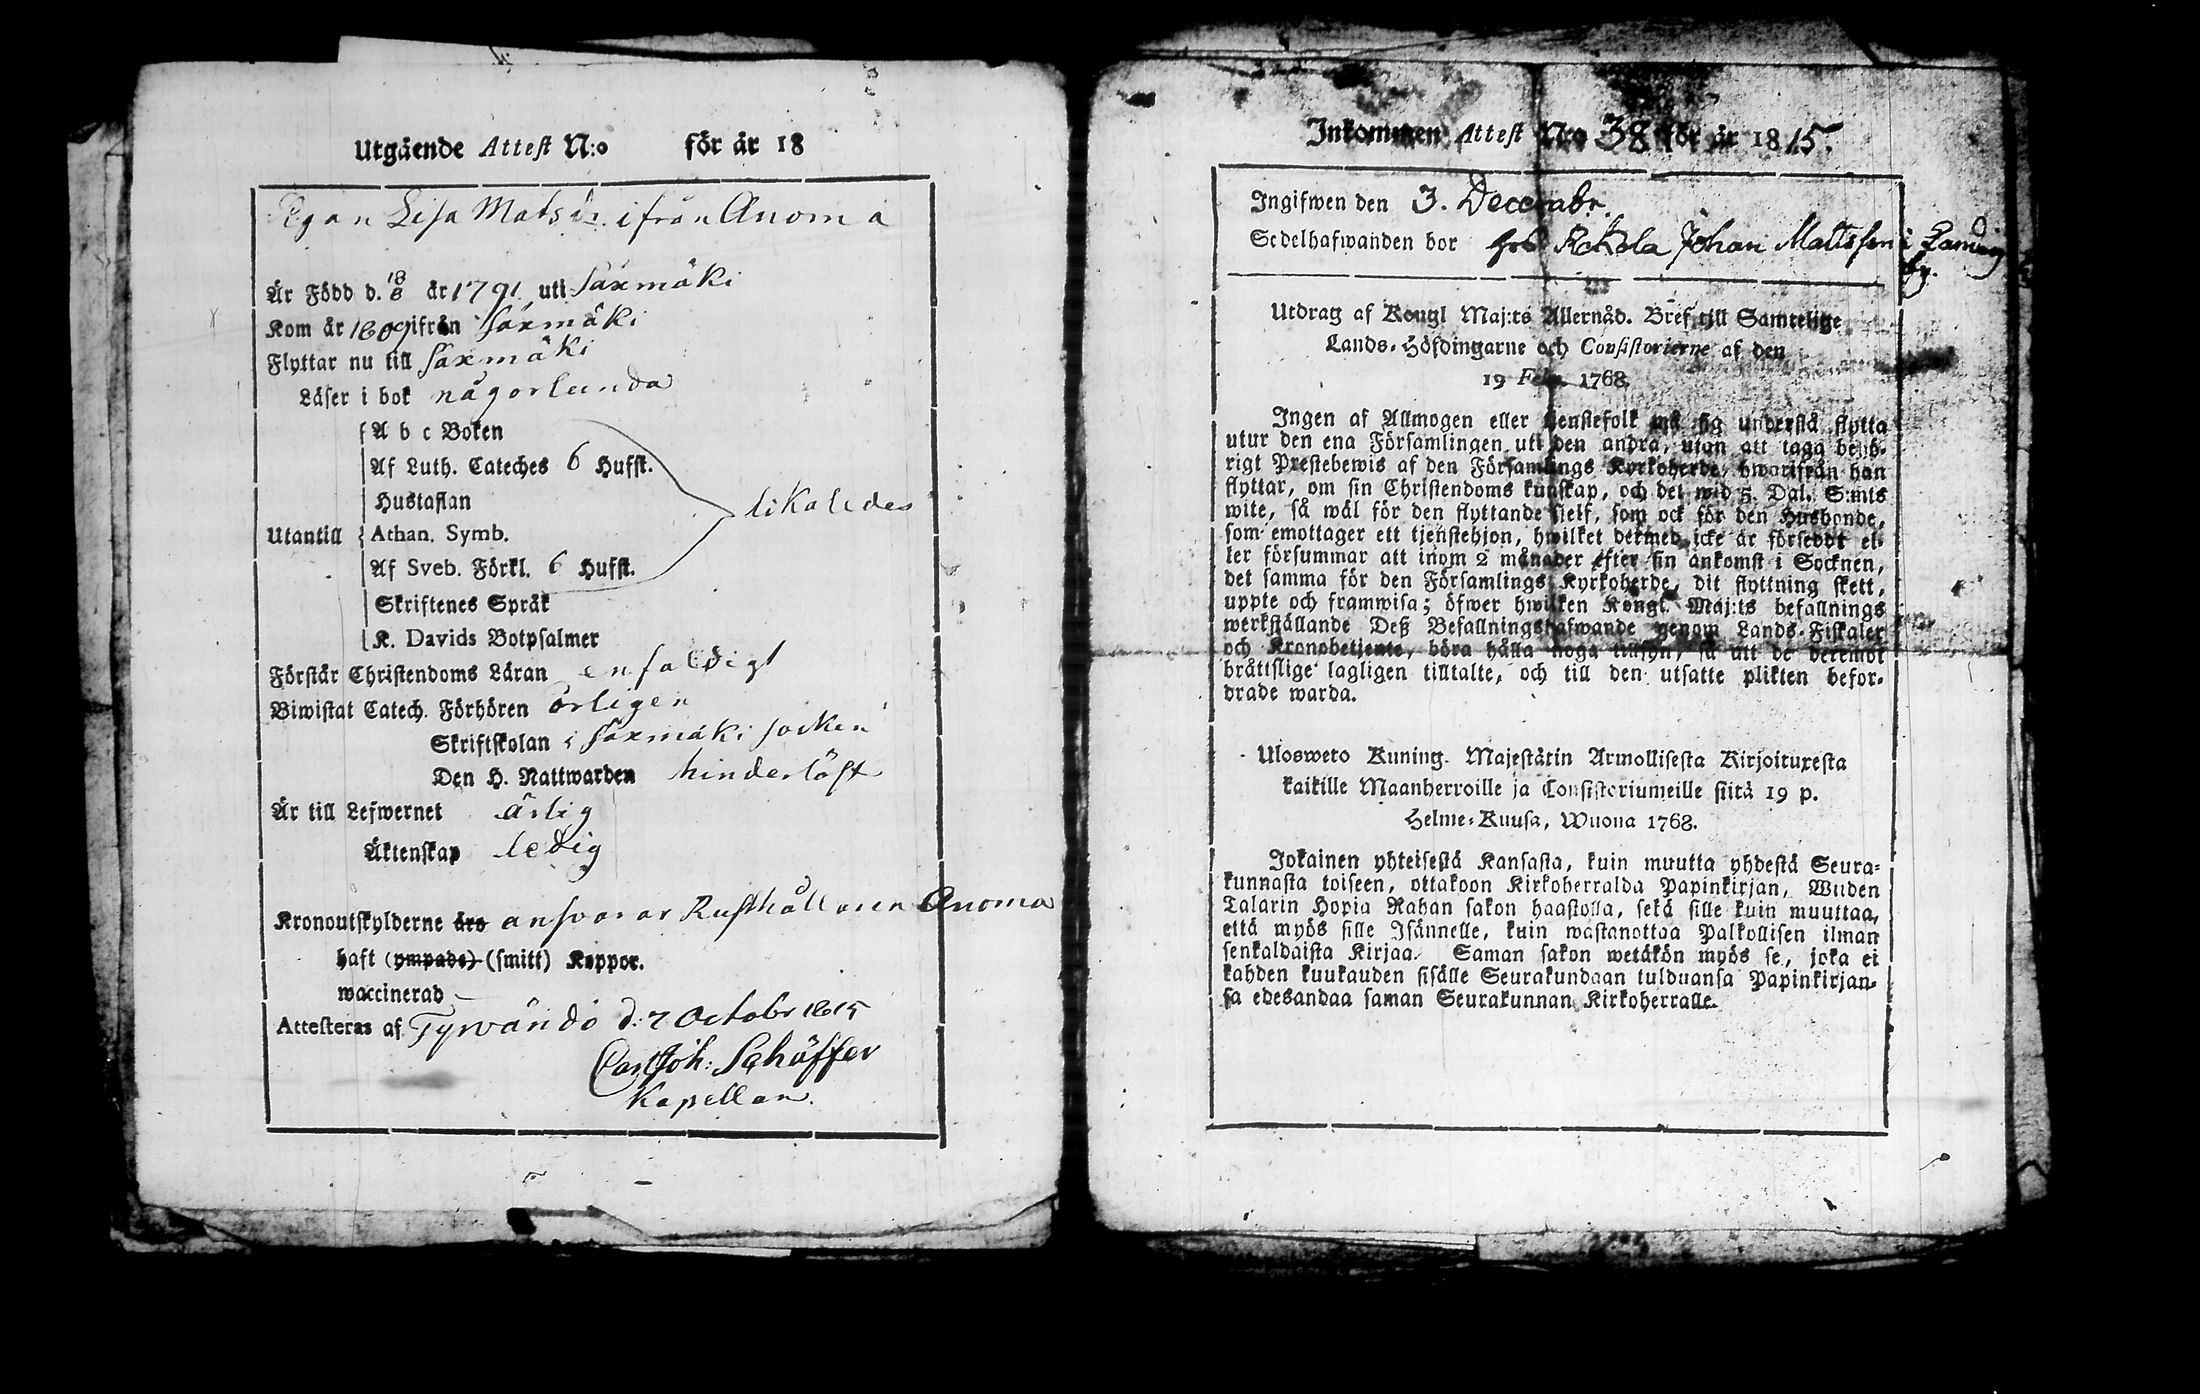 Utgående Attest N:o för år 18
Pigan Lisa Matsdr. ifrån Anoma
Är Född d. 18/8 år 1791 uti Säxmäki
Kom år 1809 ifrån Säxmäki
Flyttar nu till Säxmäki
Läser i bok någorlunda
A b c Boken
Af Luth. Cateches 6 Hufst.
Hustaflan
likaledes
Utantill Athan. Symb.
Af Sveb. Förkl. 6 Hufst.
Skriftenes Språk
K. Davids Botpsalmer
Förstår Christendoms Läran enfaldigt
Biwistat Catech. Förhören årligen
Skriftskolan i Säxmäki socken
Den H. Nattwarden hinderlöst
Är till Lefwernet ärlig
Äktenskap ledig
Kronoutskylderne äro ansvarar Rusthållaren Anoma
haft (ympade) (smitt) Koppor.
waccinerad
Attesteras af Tyrvändö d. 7 Octobr 1815
Carl Joh: Schäffer
Kapellan.
Inkommen Attest N:o 38 för år 1815.
Ingifwen den 3. Decembr.
Sedelhafwanden bor Johan Mattsson i
by.
Utdrag af Kongl Maj:ts Allernåd. Bref till Samtelige
Lands-Höfdingarne och Consistorierne af den
19 Febr. 1768.
Ingen af Allmogen eller tjenstefolk må sig understå flytta
utur den ena Församlingen uti den andra, utan att taga behö-
rigt Prestebewis af den Församlings Kyrkoherde, hwarifrån han
flyttar, om sin Christendoms kunskap, och det wid 5. Dal. S:mts
wite, så wäl för den flyttande sjelf, som ock för den Husbonde,
som emottager ett tjenstehjon, hwilket dermed icke är försedt el-
ler försummar att inom 2 månader efter sin ankomst i Socknen,
det samma för den Församlings Kyrkoherde, dit flyttning skett,
uppte och framwisa; öfwer hwilken Kongl. Maj:ts befallnings
werkställande Deß Befallningshafwande genom Lands-Fiskaler
och Kronobetjente, böra hålla noga tillsyn, så att de deremot
bråttslige lagligen tilltalte, och till den utsatte plikten befor-
drade warda.
Ulosweto Kuning. Majestätin Armollisesta Kirjoituxesta
kaikille Maanherroille ja Consistoriumeille siitä 19 p.
Helme-Kuusa, Wuona 1768.
Jokainen yhteisestä Kansasta, kuin muutta yhdestä Seura-
kunnasta toiseen, ottakoon Kirkoherralda Papinkirjan, Wiiden
Talarin Hopia Rahan sakon haastolla, sekä sille kuin muuttaa,
että myös sille Isännelle, kuin wastanottaa Palkollisen ilman
senkaldaista Kirjaa. Saman sakon wetäkön myös se, joka ei
kahden kuukauden sisälle Seurakundaan tulduansa Papinkirjan-
sa edesandaa saman Seurakunnan Kirkoherralle.